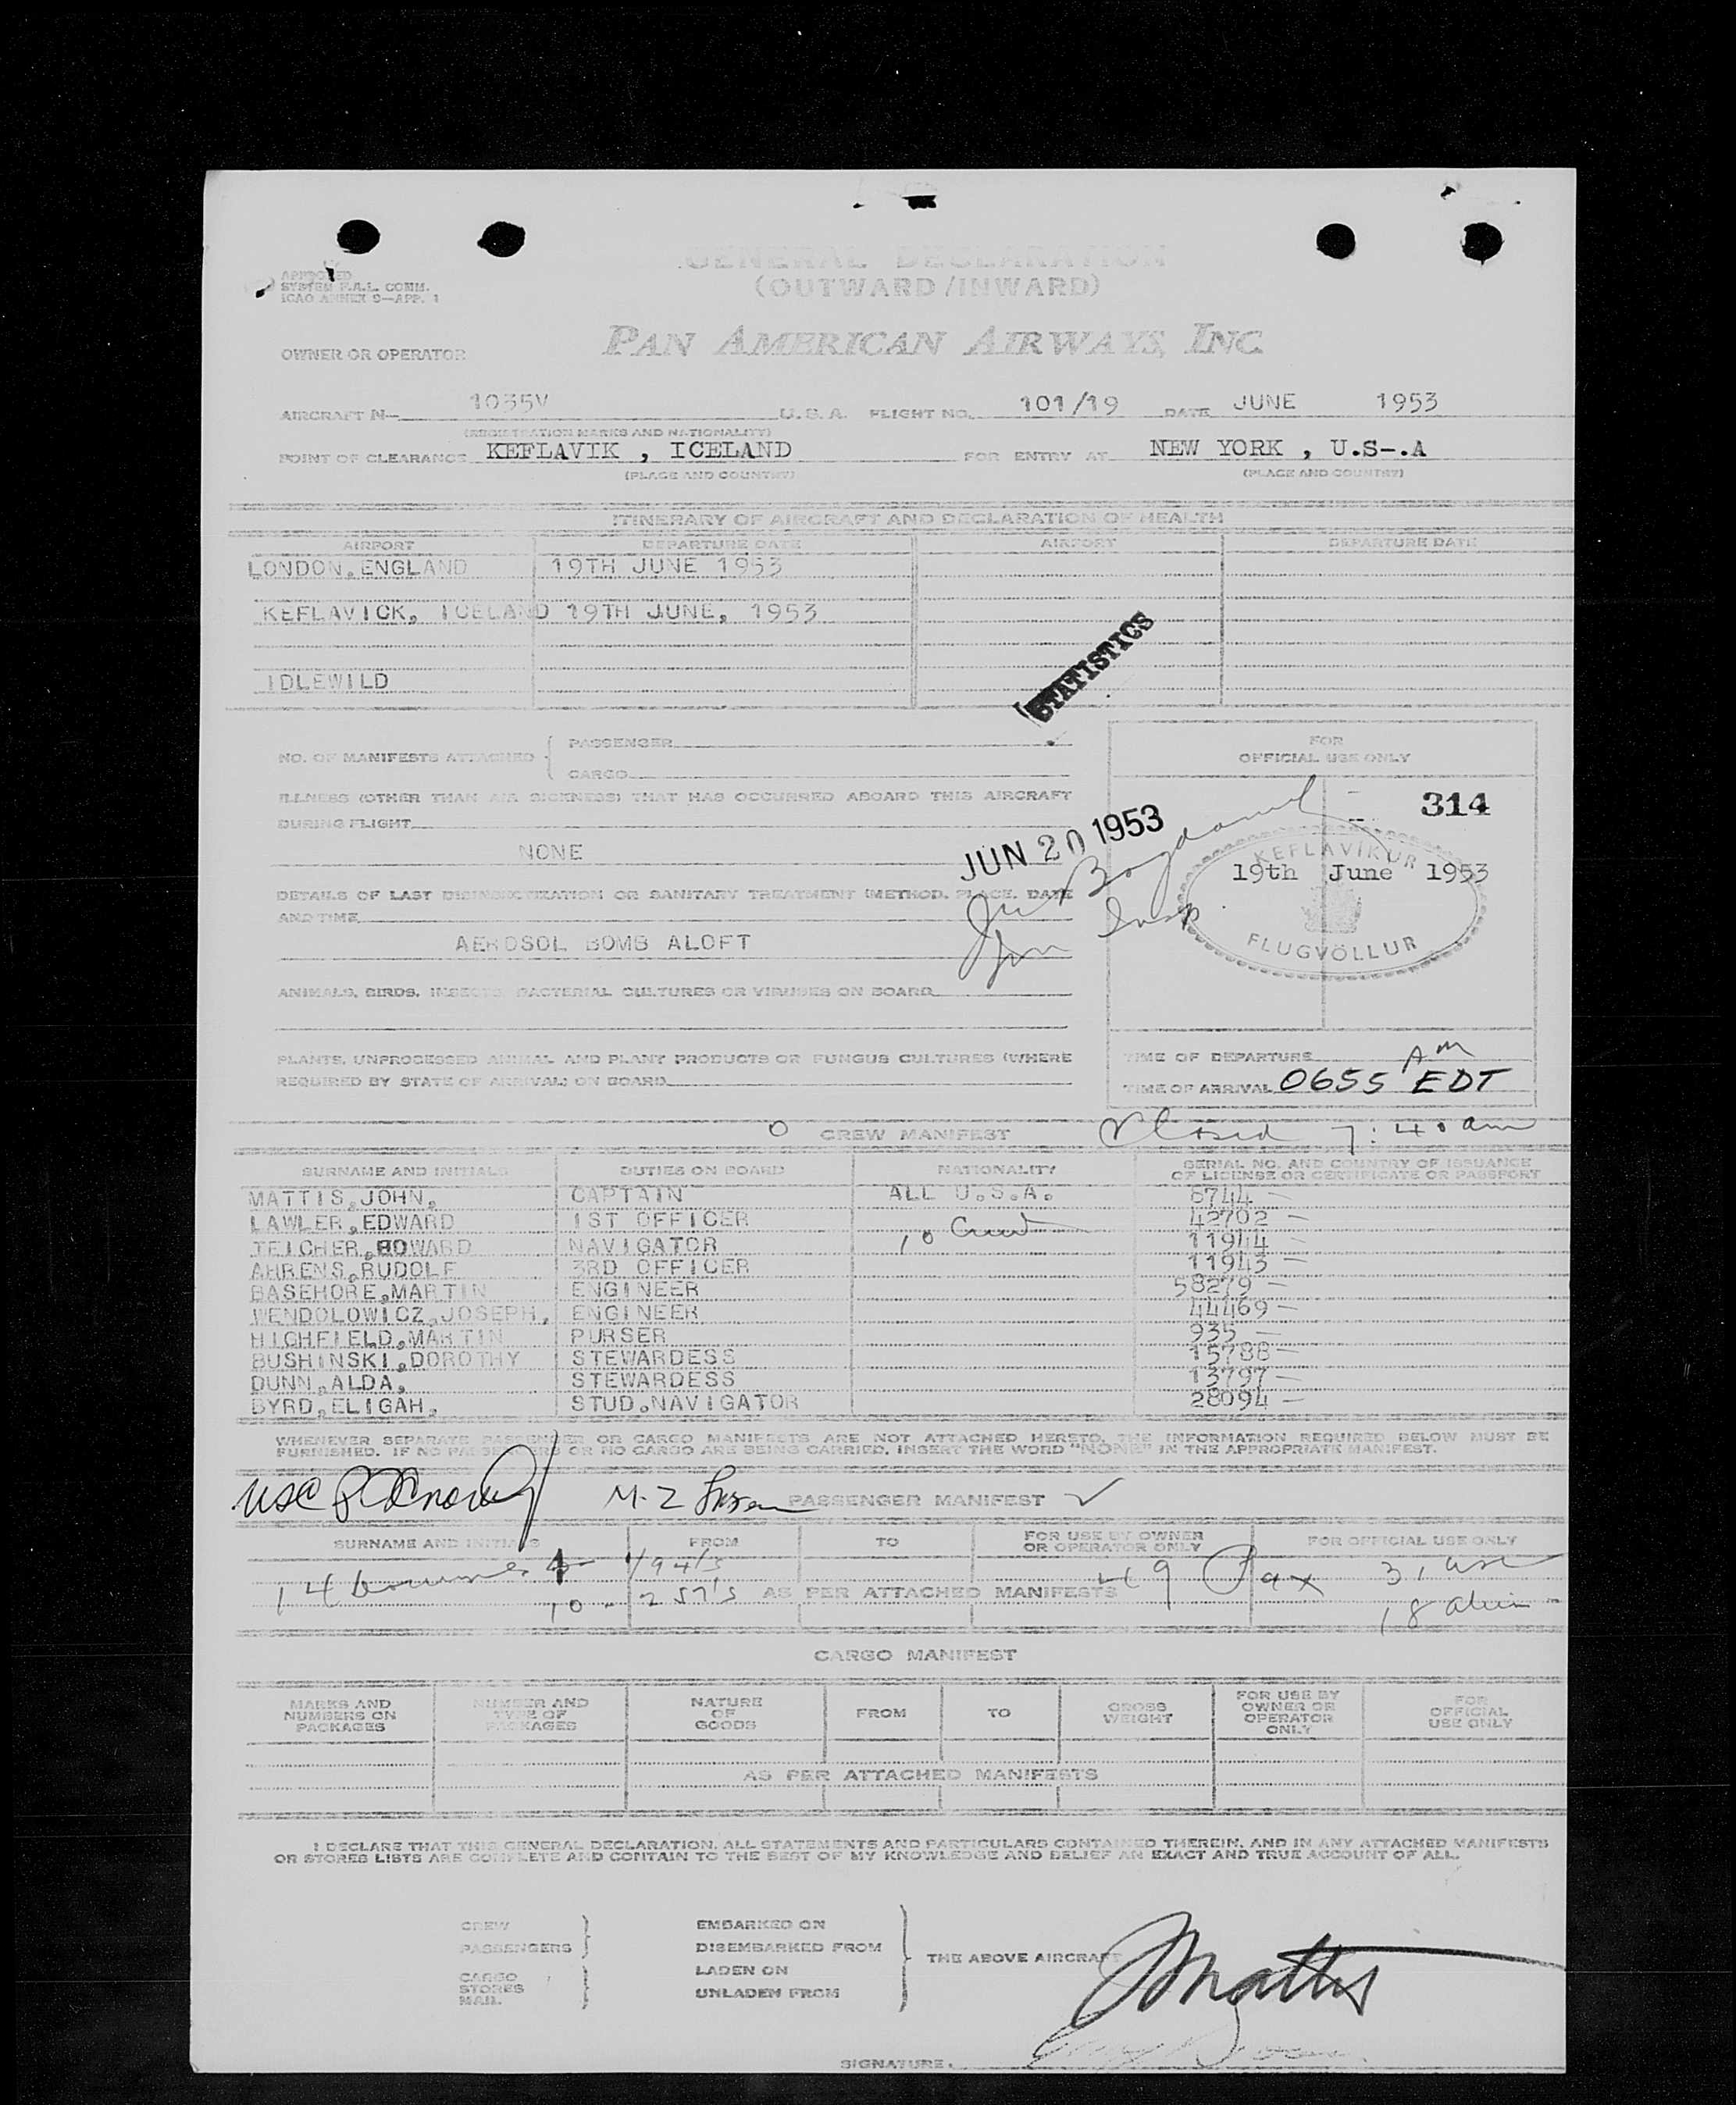 GENERAL DECLARATION
(OUTWARD/INWARD)
APPROVED
SYSTEM F.A.L. COMM.
ICAO ANNEX 9—APP. 1
OWNER OR OPERATOR
PAN AMERICAN AIRWAYS, INC.
AIRCRAFT N— 1035V U.S.A. FLIGHT NO. 101/19 DATE JUNE 1953
(REGISTRATION MARKS AND NATIONALITY)
POINT OF CLEARANCE KEFLAVIK , ICELAND FOR ENTRY AT NEW YORK , U.S-.A
(PLACE AND COUNTRY) (PLACE AND COUNTRY)
ITINERARY OF AIRCRAFT AND DECLARATION OF HEALTH
AIRPORT DEPARTURE DATE AIRPORT DEPARTURE DATE
LONDON,ENGLAND 19TH JUNE 1953
KEFLAVICK, ICELAND 19TH JUNE, 1953
IDLEWILD
STATISTICS
NO. OF MANIFESTS ATTACHED { PASSENGER
CARGO
FOR
OFFICIAL USE ONLY
ILLNESS (OTHER THAN AIR SICKNESS) THAT HAS OCCURRED ABOARD THIS AIRCRAFT
DURING FLIGHT
314
JUN 20 1953
NONE
KEFLAVÍKUR
19th June 1953
FLUGVÖLLUR
DETAILS OF LAST DISINSECTIZATION OR SANITARY TREATMENT (METHOD, PLACE, DATE
AND TIME
AEROSOL BOMB ALOFT
ANIMALS, BIRDS, INSECTS, BACTERIAL CULTURES OR VIRUSES ON BOARD
PLANTS, UNPROCESSED ANIMAL AND PLANT PRODUCTS OR FUNGUS CULTURES (WHERE
REQUIRED BY STATE OF ARRIVAL) ON BOARD
TIME OF DEPARTURE AM
TIME OF ARRIVAL 0655 EDT
CREW MANIFEST Closed 7:40 am
SURNAME AND INITIALS DUTIES ON BOARD NATIONALITY SERIAL NO. AND COUNTRY OF ISSUANCE
OF LICENSE OR CERTIFICATE OR PASSPORT
MATTIS,JOHN, CAPTAIN ALL U.S.A. 8744 —
LAWLER,EDWARD 1ST OFFICER 42702 —
TEICHER,HOWARD NAVIGATOR 10 Crew 11944 —
AHRENS,RUDOLF 3RD OFFICER 11943 —
BASEHORE,MARTIN ENGINEER 58279 —
WENDOLOWICZ,JOSEPH, ENGINEER 44469 —
HIGHFIELD,MARTIN PURSER 935 —
BUSHINSKI,DOROTHY STEWARDESS 15788 —
DUNN,ALDA, STEWARDESS 13797 —
BYRD,ELIGAH, STUD.NAVIGATOR 28094 —
WHENEVER SEPARATE PASSENGER OR CARGO MANIFESTS ARE NOT ATTACHED HERETO, THE INFORMATION REQUIRED BELOW MUST BE
FURNISHED. IF NO PASSENGERS OR NO CARGO ARE BEING CARRIED, INSERT THE WORD "NONE" IN THE APPROPRIATE MANIFEST.
PASSENGER MANIFEST
SURNAME AND INITIALS FROM TO FOR USE BY OWNER
OR OPERATOR ONLY FOR OFFICIAL USE ONLY
49 Pax 31 usc
10 - 257's AS PER ATTACHED MANIFESTS 18 alien
CARGO MANIFEST
MARKS AND
NUMBERS ON
PACKAGES
NUMBER AND
TYPE OF
PACKAGES
NATURE
OF
GOODS
FROM
TO
GROSS
WEIGHT
FOR USE BY
OWNER OR
OPERATOR
ONLY
FOR
OFFICIAL
USE ONLY
AS PER ATTACHED MANIFESTS
I DECLARE THAT THIS GENERAL DECLARATION, ALL STATEMENTS AND PARTICULARS CONTAINED THEREIN, AND IN ANY ATTACHED MANIFESTS
OR STORES LISTS ARE COMPLETE AND CONTAIN TO THE BEST OF MY KNOWLEDGE AND BELIEF AN EXACT AND TRUE ACCOUNT OF ALL.
CREW
PASSENGERS
CARGO
STORES
MAIL
EMBARKED ON
DISEMBARKED FROM
LADEN ON
UNLADEN FROM
THE ABOVE AIRCRAFT
JMattis
SIGNATURE